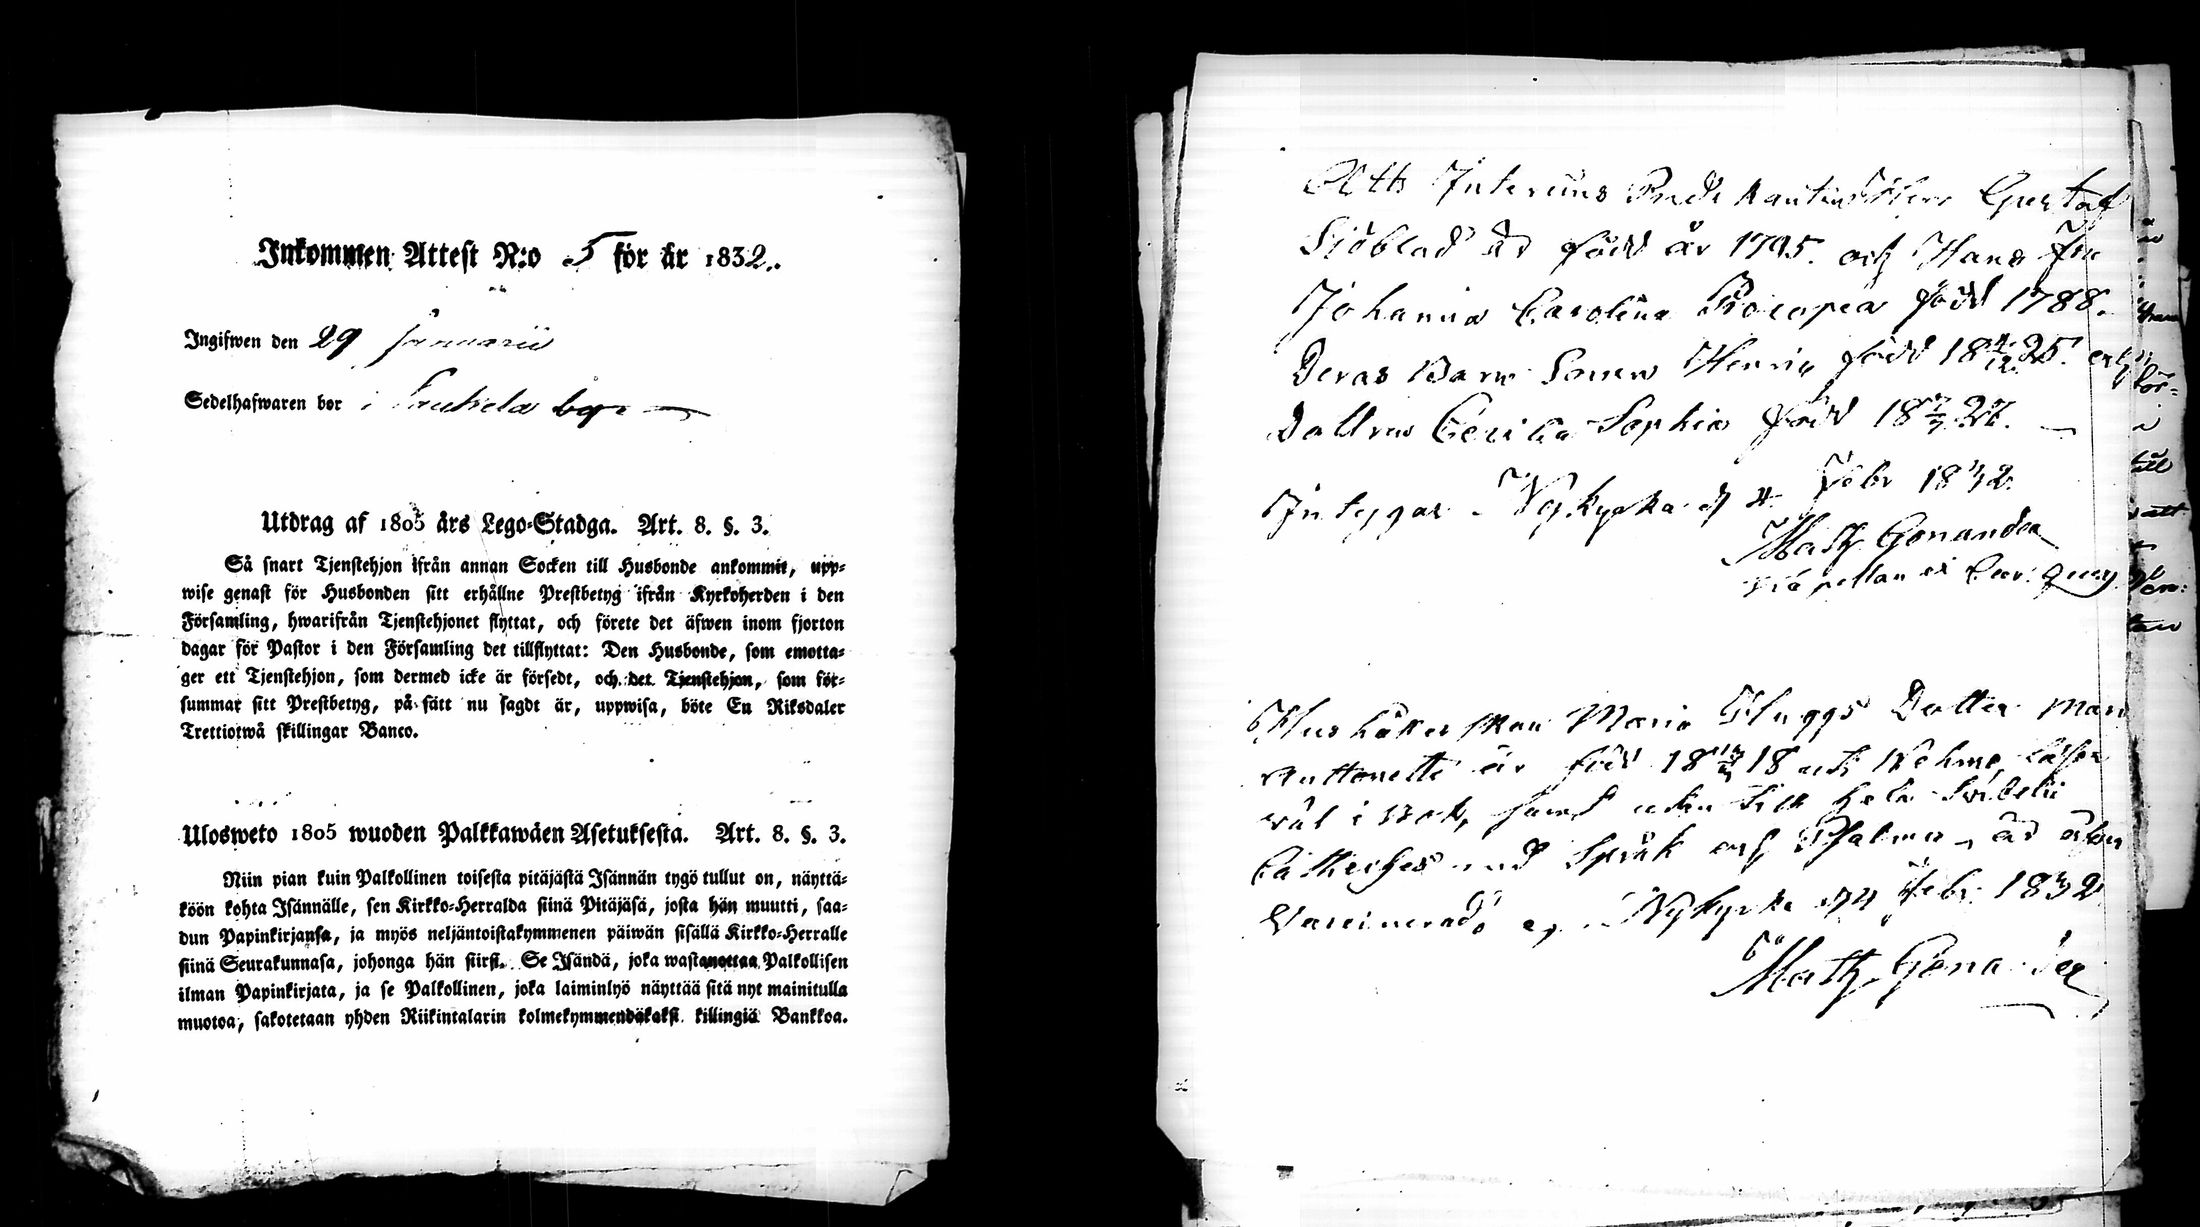 Inkommen Attest N:o 5 för år 1832.
Ingifwen den 29 Januarii
Sedelhafwaren bor i by
Utdrag af 1805 års Lego-Stadga. Art. 8. §. 3.
Så snart Tjenstehjon ifrån annan Socken till Husbonde ankommit, upp-
wise genast för Husbonden sitt erhållne Prestbetyg ifrån Kyrkoherden i den
Församling, hwarifrån Tjenstehjonet flyttat, och förete det äfwen inom fjorton
dagar för Pastor i den Församling det tillflyttat: Den Husbonde, som emotta-
ger ett Tjenstehjon, som dermed icke är försedt, och det Tjenstehjon, som för-
summar sitt Prestbetyg, på sätt nu sagdt är, uppwisa, böte En Riksdaler
Trettiotwå skillingar Banco.
Ulosweto 1805 wuoden Palkkawäen Asetuksesta. Art. 8. §. 3.
Niin pian kuin Palkollinen toisesta pitäjästä Isännän tygö tullut on, näyttä-
köön kohta Isännälle, sen Kirkko-Herralda siinä Pitäjäsä, josta hän muutti, saa-
dun Papinkirjansa, ja myös neljäntoistakymmenen päiwän sisällä Kirkko-Herralle
siinä Seurakunnasa, johonga hän siirsi. Se Isändä, joka wastanottaa Palkollisen
ilman Papinkirjata, ja se Palkollinen, joka laiminlyö näyttää sitä nyt mainitulla
muotoa, sakotetaan yhden Riikintalarin kolmekymmendäkaksi killingiä Bankkoa.
Att Interims Herr Gustaf
Sjöblad är född år 1795. och Hans Fru
Johanna Carolina född 1788.
Deras Barn Sonen Henric född 18 25. och
Dottren Cecilia Sophia född 18
Intygar. Nykyrka d 4 Febr 1832.
Math Gonander
Capellan
Maria Fluggs Dotter Mari
Antonetta är född 18 18 läser
väl i Bok, samt utan till hela Svebelii
Catheches med Språk och Psalmer, är äfven
Vaccinerad Nykyrka d 4 Febr. 1832
Math Gonander